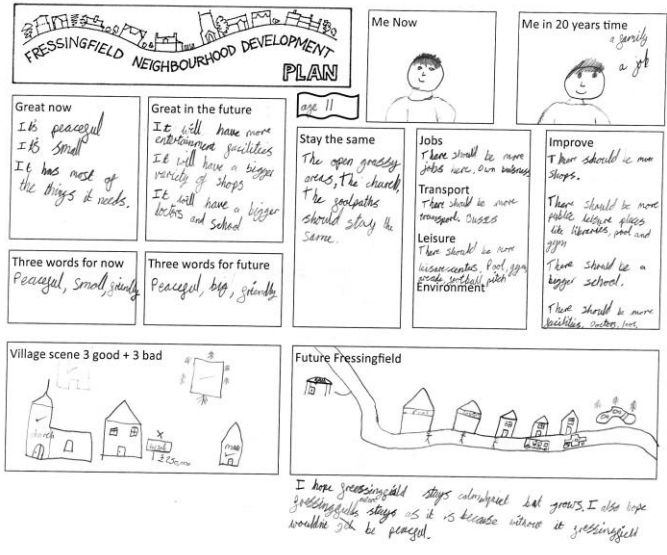 FRESSINGFIELD NEIGHBOURHOOD DEVELOPMENT
PLAN
Me Now
Me in 20 years time
a family
a job
age 11
Great now
It's peaceful
It's small
It has most of
the things it needs.
Great in the future
It will have more
entertainment facilities
It will have a bigger
variety of shops
It will have a bigger
doctors and school
Stay the same
The open grassy
areas, The church,
The footpaths
should stay the
same.
Jobs
There should be more
jobs here. Own business
Transport
There should be more
transport. Buses
Leisure
There should be more
leisure centres, Pool, gym,
football pitch
Environment
Improve
There should be more
shops.
There should be more
public leisure places
like libraries, pool and
gym
There should be a
bigger school.
There should be more
facilities, Doctors,
Three words for now
Peaceful, Small, friendly
Three words for future
Peaceful, big, friendly
Village scene 3 good + 3 bad
church
Future Fressingfield
I hope fressingfield stays calm/quiet but grows. I also hope
fressingfields stays as it is because without it fressingfield
wouldnt be peaceful.